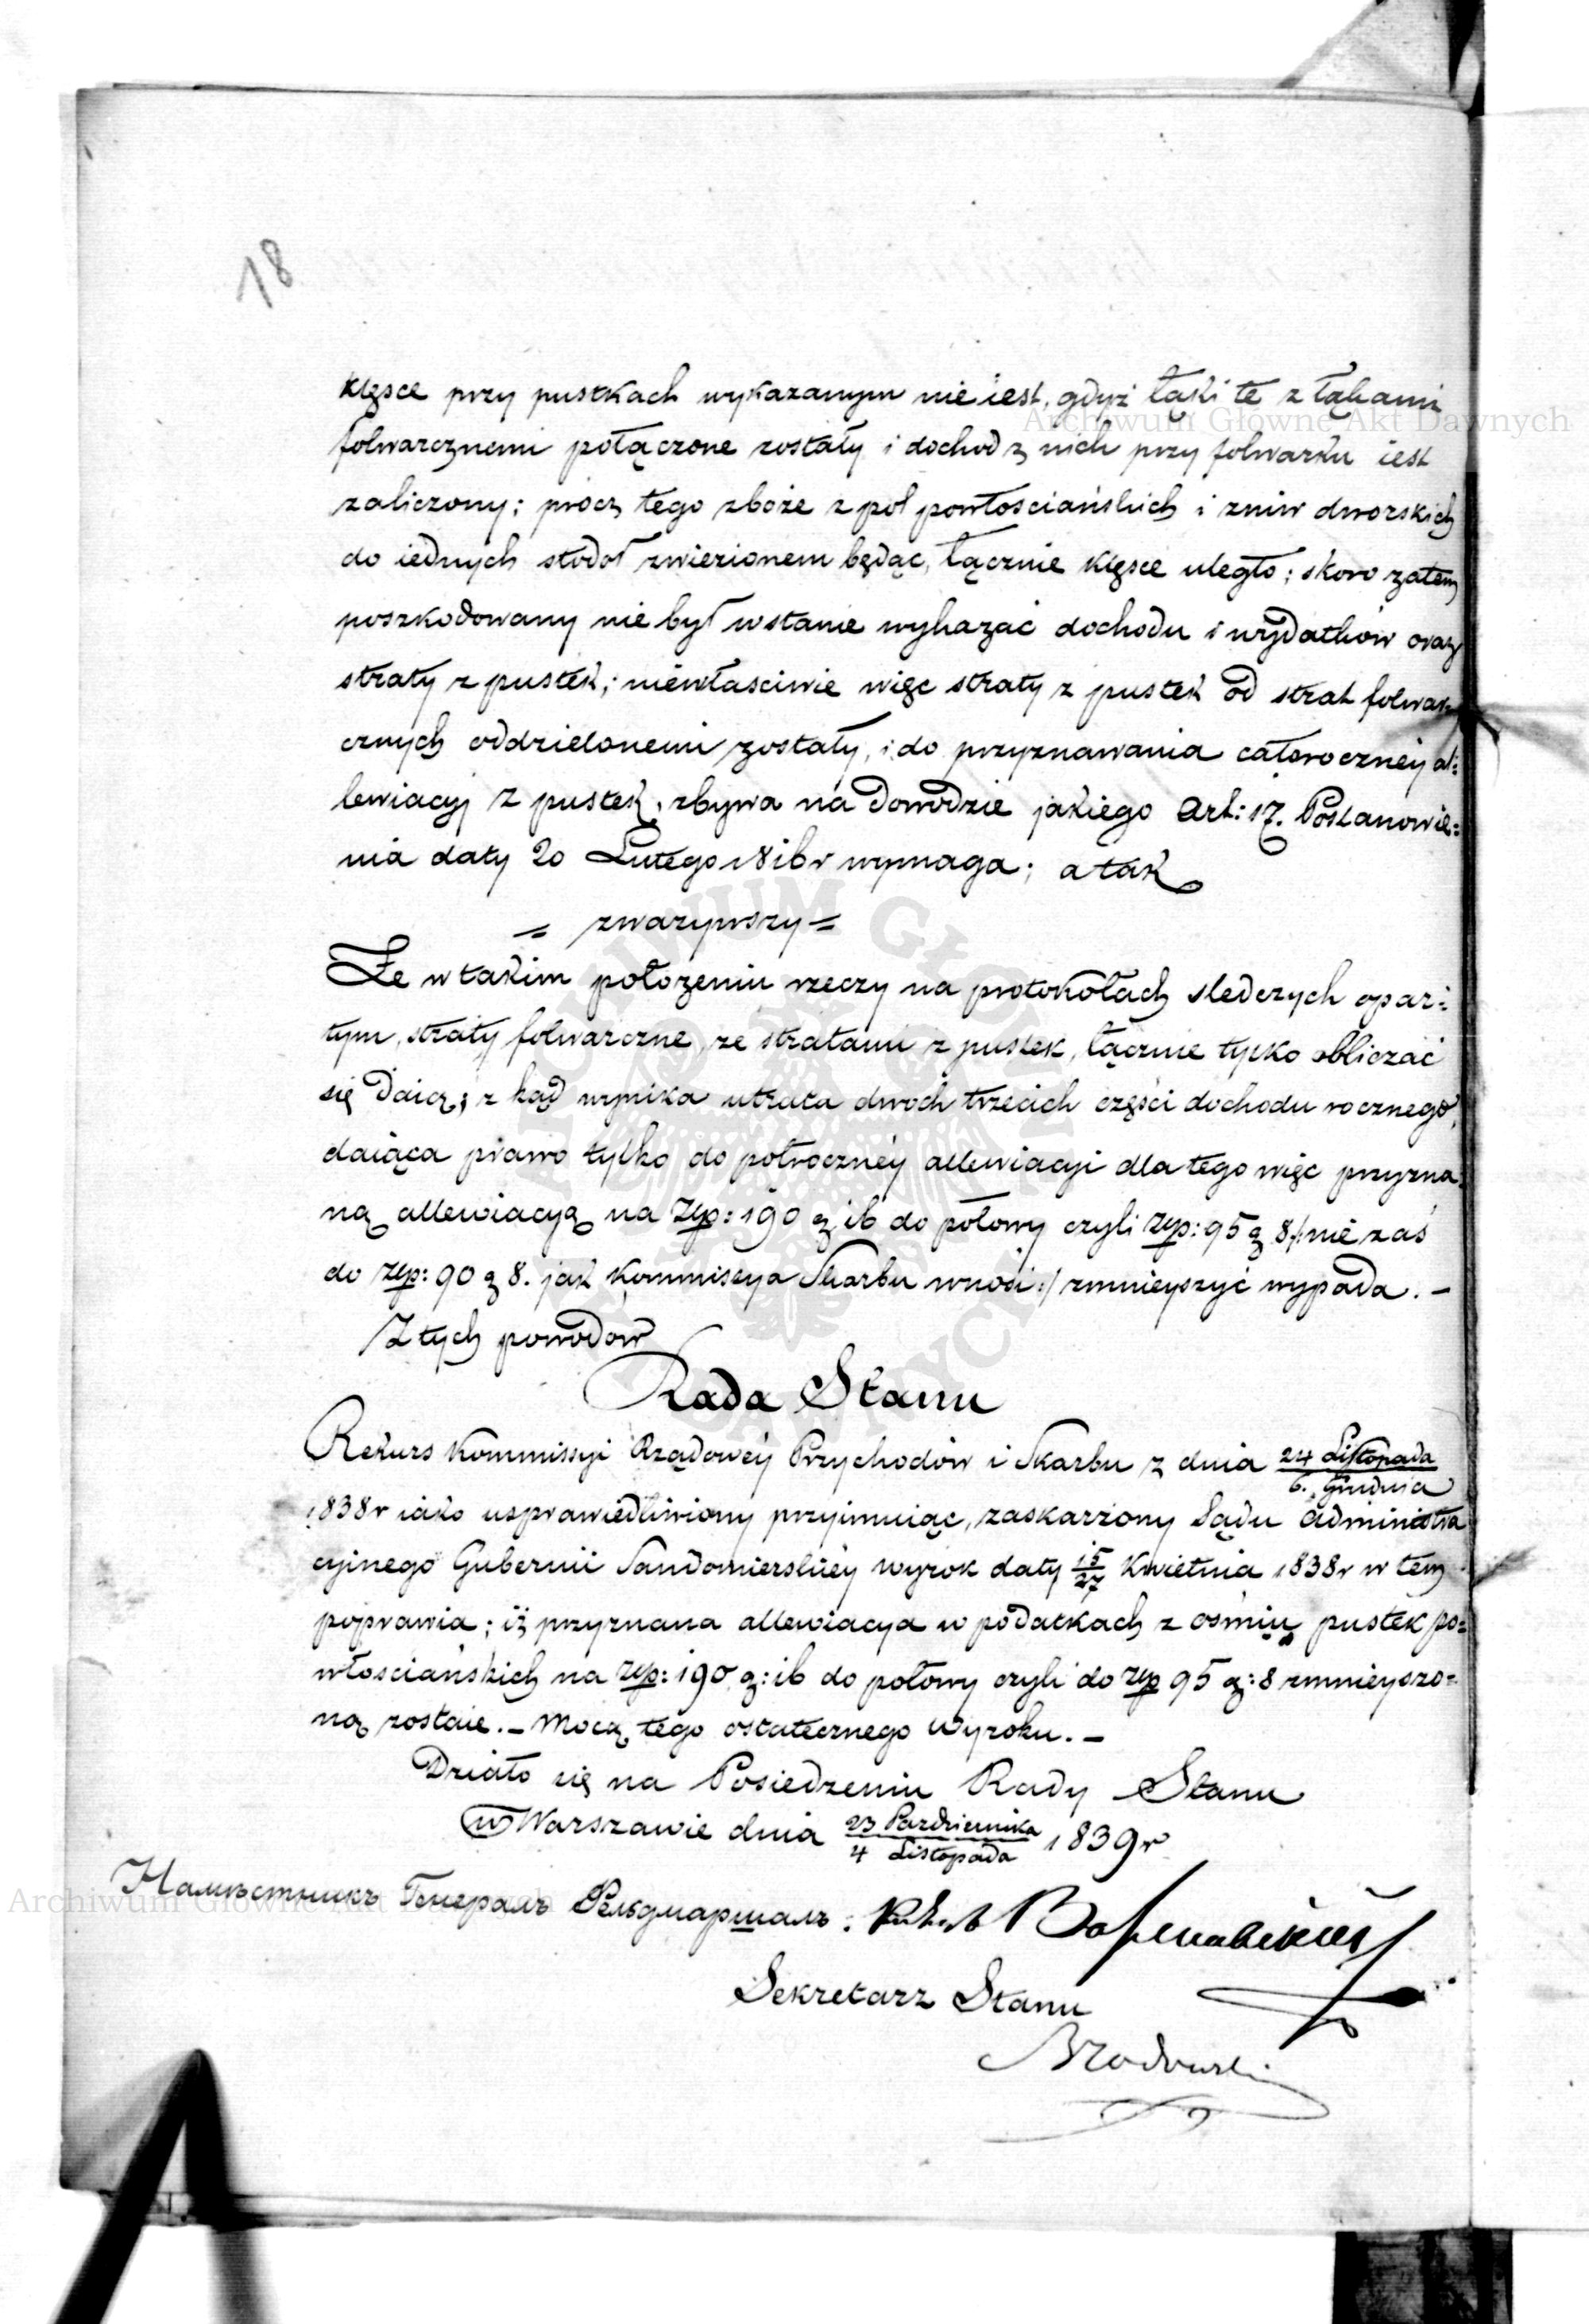 18
klęsce przy pustkach wykazanym nie iest, gdyż łąki te z łąkami
folwarcznemi połączone zostały i dochod z nich przy folwarku iest
zaliczony; procz tego zboże z pol powłosciańskich i zniw dworskich
do iednych stodoł zwiezionem będąc, łącznie klęsce uległo; skoro zatem
poszkodowany nie był wstanie wykazać dochodu i wydatkow oraz
straty z pustek; niewłasciwie więc straty z pustek od strat folwar-
cznych oddzielonemi zostały, i do przyznawania całoroczney al:
lewiacyj z pustek, zbywa na dowodzie jakiego Art: 17. Postanowie:
nia daty 20 Lutego 1816r wymaga; a tak
= zwazywszy =
Ze w takim położeniu rzeczy na protokołach sledczych opar:
tym, straty folwarczne, ze stratami z pustek, łącznie tylko obliczać
się daią; z kąd wynika utrata dwoch trzecich części dochodu rocznego,
daiąca prawo tylko do połroczney allewiacyi dla tego więc przyzna:
ną allewiacyą na Złp: 190 g 16 do połowy czyli Złp: 95 g 8 /: nie zaś
do złp: 90 g 8. jak Kommissya Skarbu wnosi :/ zmnieyszyć wypada. –
Z tych powodow
Rada Stanu
Rekurs Kommissyi Rządowey Przychodów i Skarbu z dnia 24 Listopada
6. Grudnia
1838r iako usprawiedliwiony przyimuiąc, zaskarżony Sądu Administra
cyjnego Gubernii Sandomierskiey wyrok daty 15/27 Kwietnia 1838r w tem
poprawia; iż przyznana allewiacya w podatkach z osmiu pustek po:
włosciańskich na złp: 190 g: 16 do połowy czyli do złp 95 g: 8 zmnieyszo:
ną zostaie. – Mocą tego ostatecznego Wyroku. –
Działo się na Posiedzeniu Rady Stanu
w Warszawie dnia 23 Pazdziernika 1839r
4 Listopada
Намѣстникъ Генералъ Фельдмаршалъ: Князь Варшавскій
Sekretarz Stanu
Brodowski
Archiwum Główne Akt Dawnych